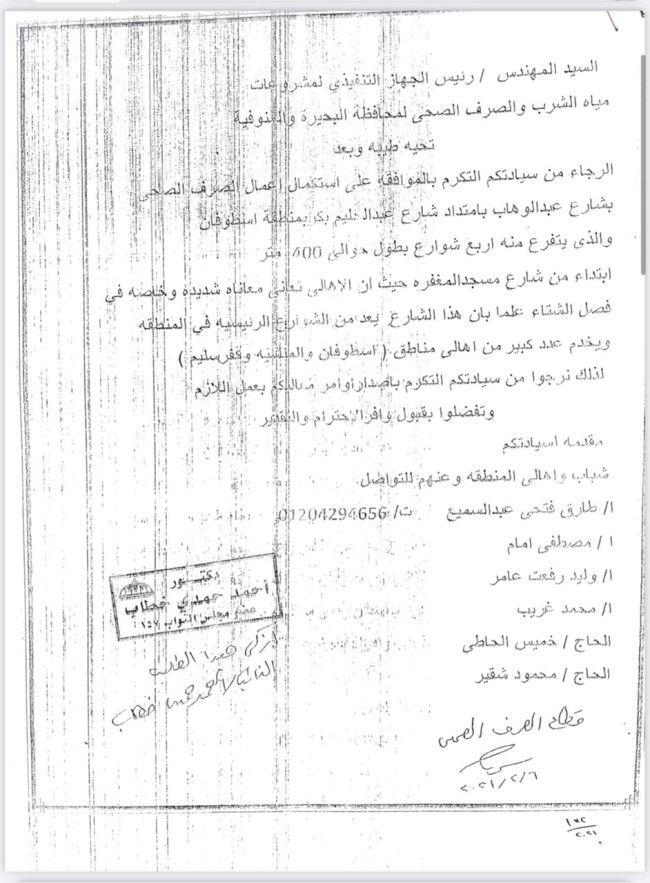 السيد المهندس / رئيس الجهاز التنفيذي لمشروعات
مياه الشرب والصرف الصحى لمحافظة البحيرة والمنوفية
تحيه طيبه وبعد
الرجاء من سيادتكم التكرم بالموافقه على استكمال اعمال الصرف الصحى
بشارع عبدالوهاب بامتداد شارع عبدالحليم بكر بمنطقة اسطوفان
والذى يتفرع منه اربع شوارع بطول حوالى 400 متر
ابتداء من شارع مسجدالمغفره حيث ان الاهالى تعانى معاناه شديده وخاصه في
فصل الشتاء علما بان هذا الشارع يعد من الشوارع الرئيسيه في المنطقه
ويخدم عدد كبير من اهالى مناطق ( اسطوفان والمنشيه وكفرسليم )
لذلك نرجوا من سيادتكم التكرم باصدار أوامر معاليكم بعمل اللازم
وتفضلوا بقبول وافر الاحترام والتقدير
مقدمه لسيادتكم
شباب واهالى المنطقه وعنهم للتواصل
ا/ طارق فتحى عبدالسميع ت/ 01204294656
ا / مصطفى امام
ا/ وليد رفعت عامر
ا/ محمد غريب
الحاج / خميس الحاطى
الحاج / محمود شقير
دكتـــور
أحمد حمدي خطاب
عضو مجلس النواب ١٥٧
أزكى هذا الطلب
النائب أحمد حمدي خطاب
قطاع الصرف الصحى
٢٠٢١/٢/٦
١٥٢
٢٠٢١